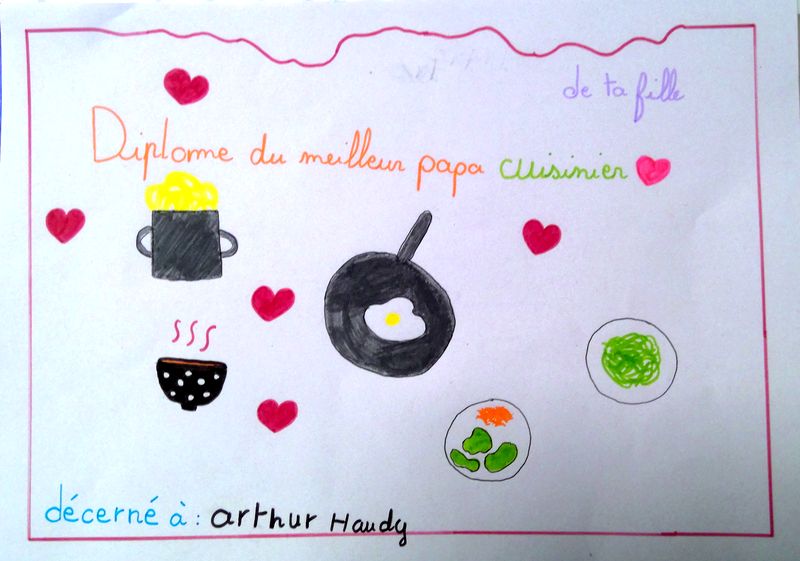 de ta fille
Diplome du meilleur papa cuisinier
décerné à : arthur Haudy